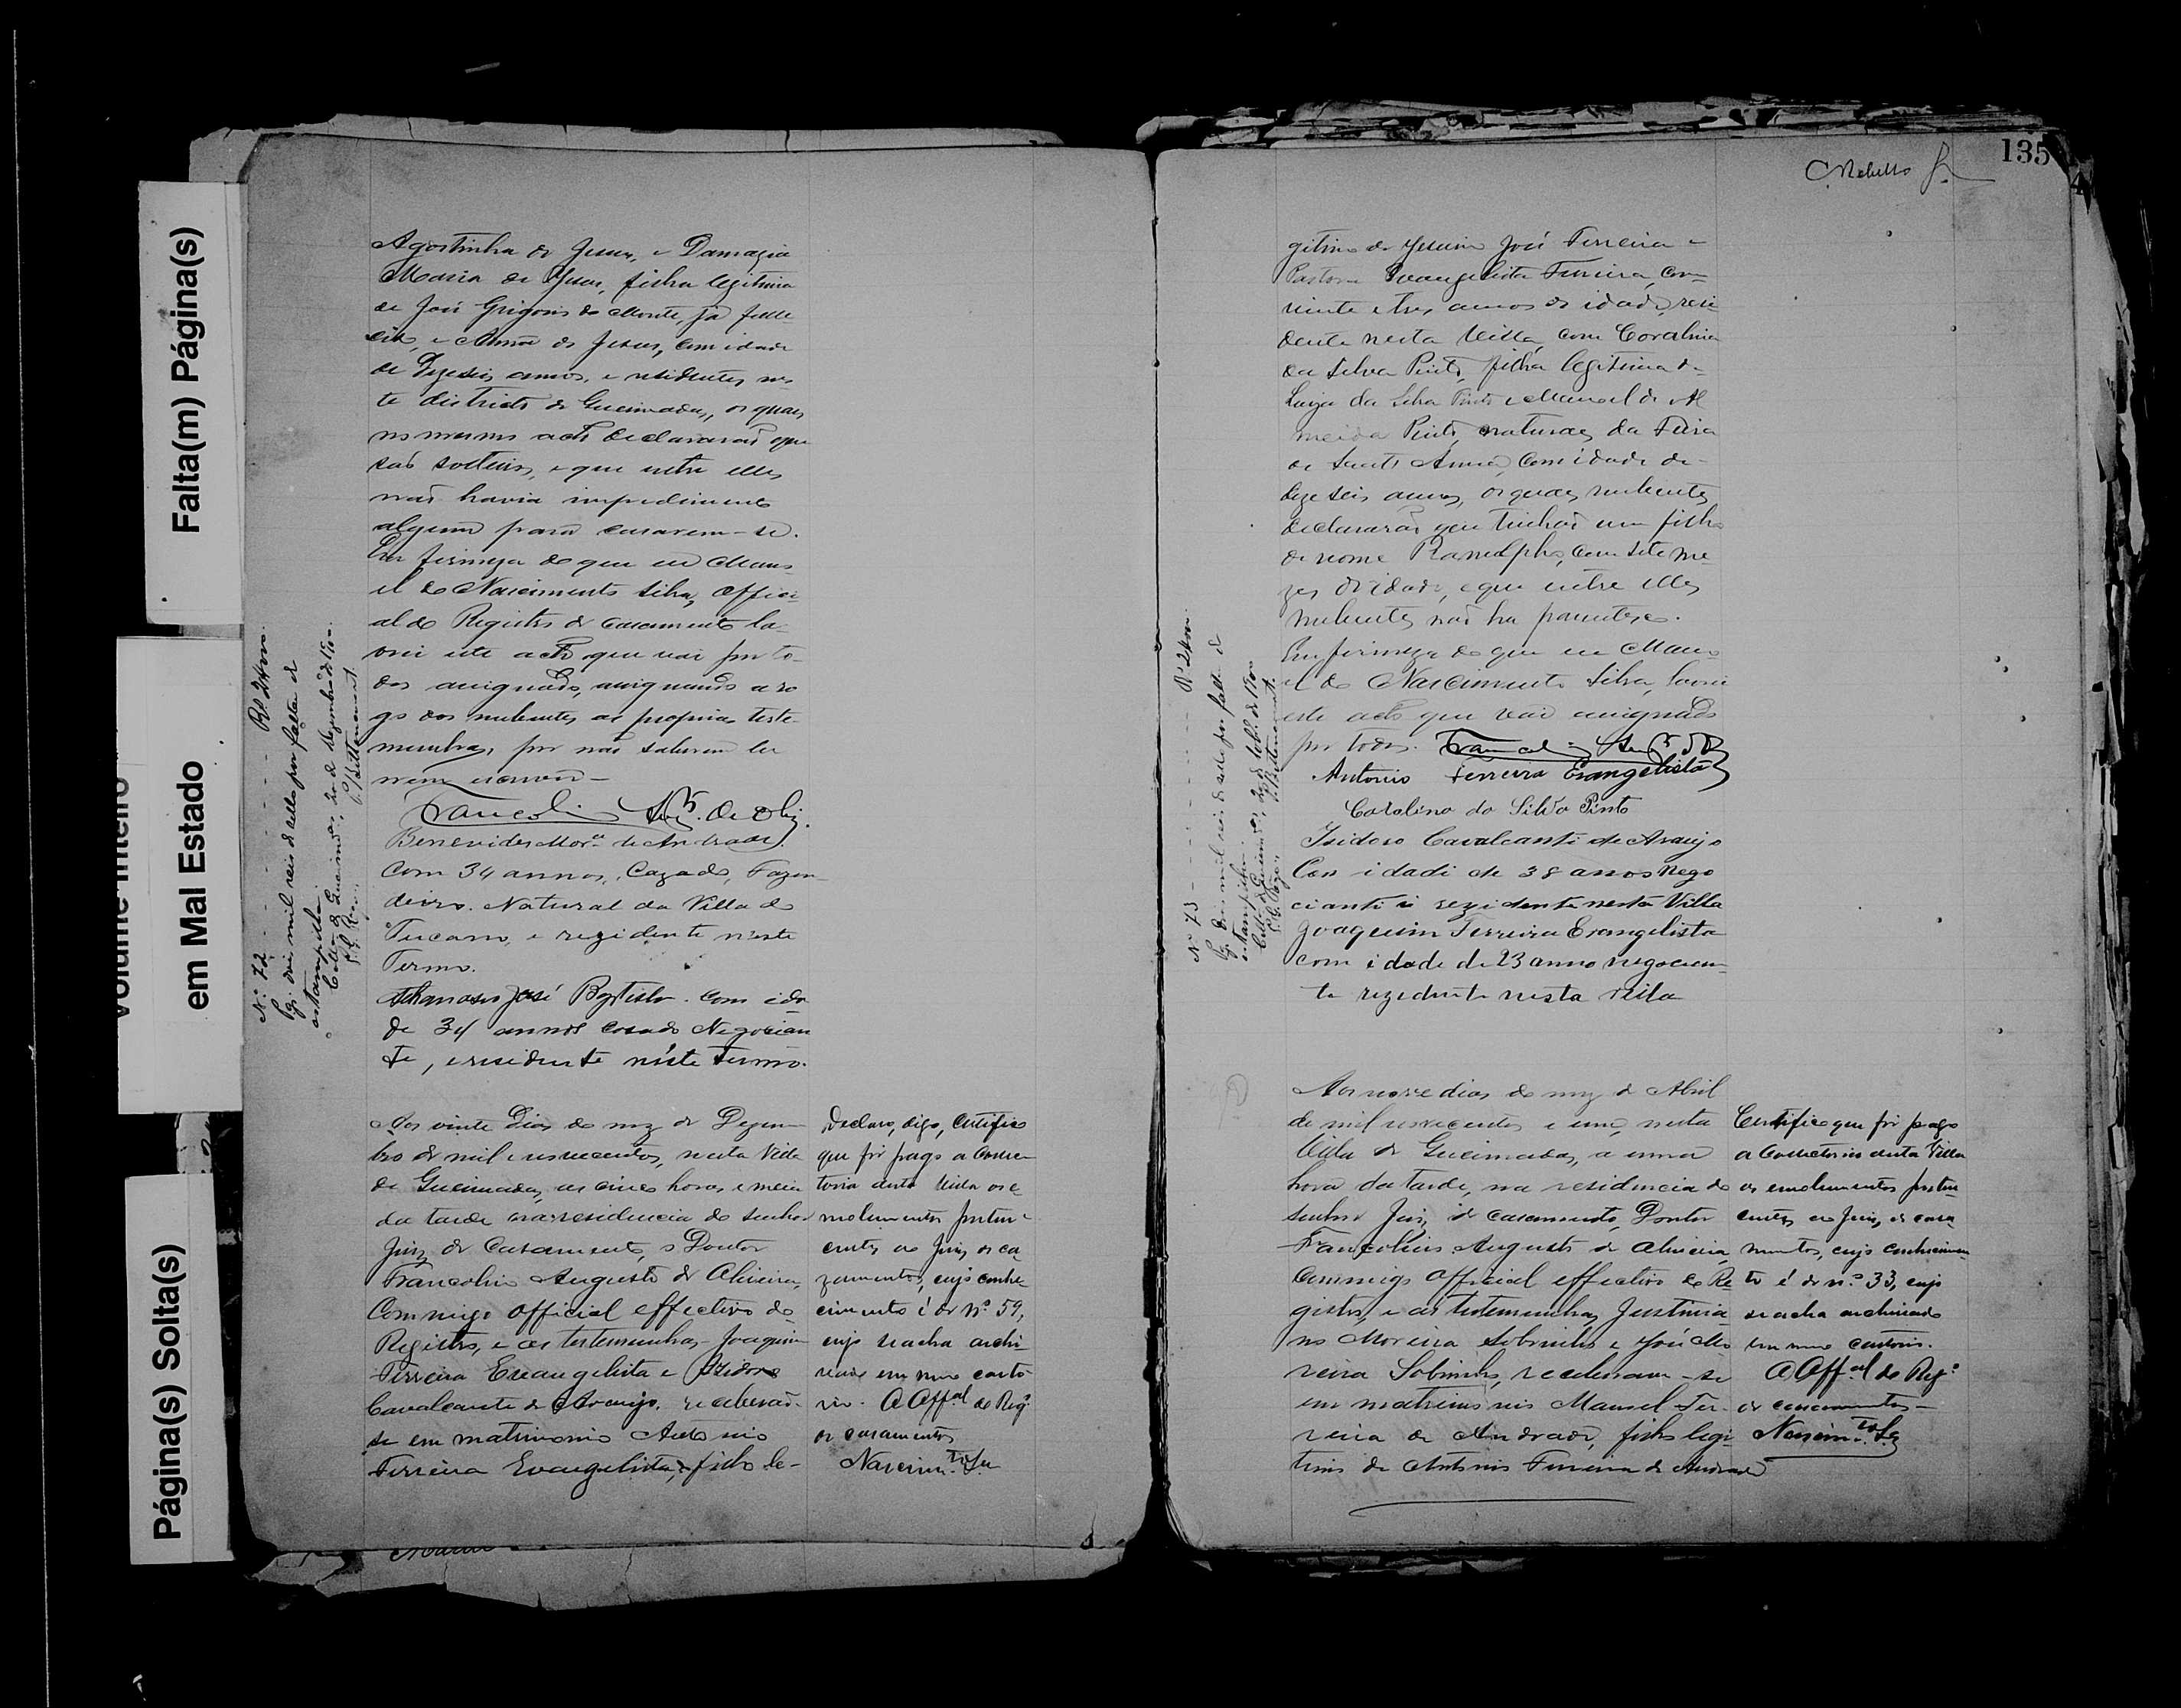 Falta(m) Página(s)
Volume Inteiro
em Mal Estado
Página(s) Solta(s)
Agostinha de Jesus, e Damazia
Maria de Jesus, filha legitima
de José Grigorio do Monte, já falle-
cido, e Anna de Jesus, com idade
de Dezeseis annos, e residentes nes-
te districto de Queimadas, os quaes
no mesmo acto declararaõ que
saõ solteiros, e que entre elles
naõ havia impedimento
algum para casarem-se.
Em firmeza do que eu Mano-
el do Nascimento Silva, Offici-
al do Registro de casamento la-
vrei este acto que vai por to-
dos assignado, assignando a ro-
go dos nubentes as proprias teste-
munhas, por naõ saberem ler
nem escrever-
Francolino Aug. de Oliv.
Benevides Mor.ª de Andrade.
Com 34 annos, Cazado, Fazen-
deiro. Natural da Villa de
Tucano, e rezidente neste
Termo.
Athanasio José Baptista. com ida
de 34 annos casado Negocian
te, e residente néste termo.
Nº 72 - - - - - - Rs 2#000.
Pg. dois mil reis de sello por falta de
estampilha.
Coll.ª de Queimadas, 20 de Dezembro de 1900.
Bettencourt.
Aos vinte Dias do mez de Dezem-
bro de mil e novecentos, nesta Villa
de Queimadas, as cinco horas e meia
da tarde na residencia do senhor
Juiz de Casamento, o Doutor
Francolino Augusto de Oliveira,
Commigo official effectivo do
Registro, e as testemunhas, Joaquim
Ferreira Evangelista e Izidoro
Cavalcante de Araujo, receberaõ-
se em matrimonio Antonio
Ferreira Evangelista, filho le-
Declaro, digo, Certifico
que foi pago a Collec-
toria desta Villa os e-
molumentos perten-
centes ao Juiz de ca-
zamentos, cujo conhe-
cimento é de Nº 59,
cujo se acha archi-
vado em meo carto-
rio. O Off.al do Reg.º
de casamentos
Nascim.to Sª
135
Rebello
gitimo de Jesuino José Ferreira e
Pastora Evangelista Ferreira, com
vinte e tres annos de idade, resi-
dente nesta Villa, com Coralina
da Silva Pinto, filha legitima de
Luiza da Silva Pinto e Manoel de Al
meida Pinto, natural da Feira
de Sant' Anna, com idade de
dezeseis annos, os quaes nubentes
declararaõ que tinhaõ um filho
de nome Ranulpho, com sete me-
zes de idade, e que entre elles
nubentes naõ ha parentesco.
Em firmeza do que eu Mano-
el do Nascimento Silva, lavrei
este acto que vai assignado
por todos.
Antonio Ferreira Evangelista
Coralina da Silva Pinto
Isidoro Cavalcanti de Araujo
Con idadi de 38 anos Nego
cianti i rezidente nesta Villa
Joaquim Ferreira Evangelista
com idade de 23 anno negocian-
te rezedente nesta vila
Nº 73 - - - - - - Rs 2#000.
Pg. dois mil reis de sello por falta de
estampilha.
Bettencourt.
Aos nove dias do mez de Abril
de mil novecentos e um, nesta
Villa de Queimadas, a uma
hora da tarde, na residencia do
senhor Juiz de casamento, Doutor
Francolino Augusto de Oliveira,
Commigo Official effectivo do Re-
gistro, e as testemunhas Justinia-
no Moreira Sobrinho e José Mo-
reira Sobrinho, receberam-se
em matrimonio Manoel Fer-
reira de Andrade, filho legi-
timo de Antonio Ferreira de Andrade
Certifico que foi pago
a Collectoria desta Villa
os emolumentos perten-
centes ao Juiz de casa
mentos, cujo conhecimen-
to é de n.º 33, cujo
se acha archivado
em meo cartorio.
O Off.al do Reg.º
de casamentos-
Nascim.to Sª